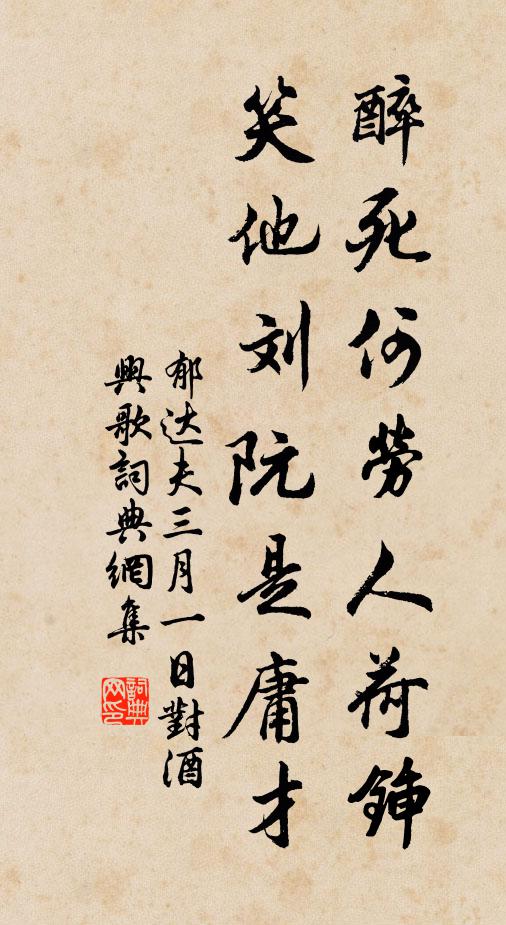 醉死何勞人荷鍤
笑他刘阮是庸才
郁达夫三月一日對酒
興歌詞典網集
詞典
网印